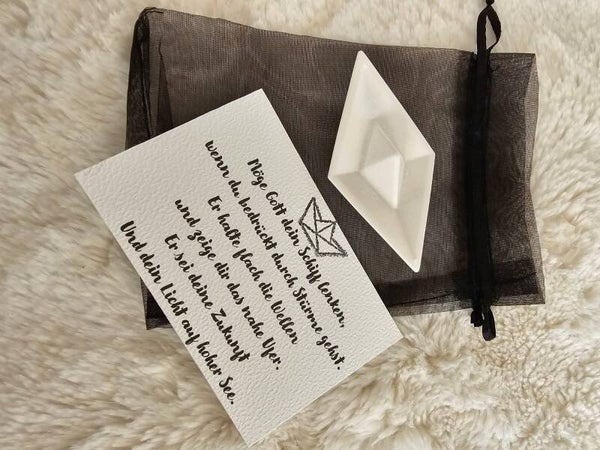 Möge Gott dein Schiff lenken,
wenn du bedrückt durch Stürme gehst.
Er halte flach die Wellen
und zeige dir das nahe Ufer.
Er sei deine Zukunft
Und dein Licht auf hoher See.